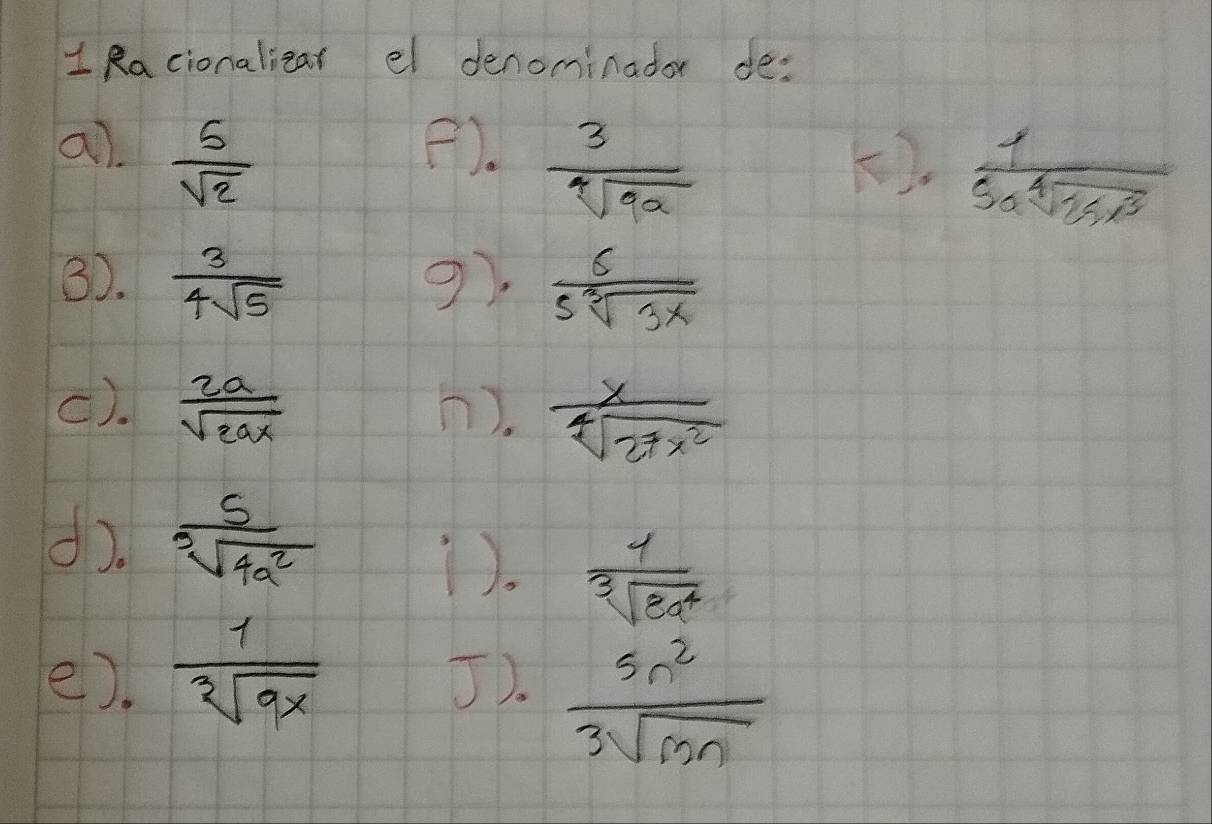 1 Racionalizar el denominador de:
a). 5/√2
F). 3/⁴√9a
K). 1/5a⁴√25x³
B). 3/4√5
g). 6/5³√3x
c). 2a/√2ax
h). x/⁴√27x²
d). 5/³√4a²
i). 1/³√8a⁴
e). 1/³√9x
J). 5n²/3√mn